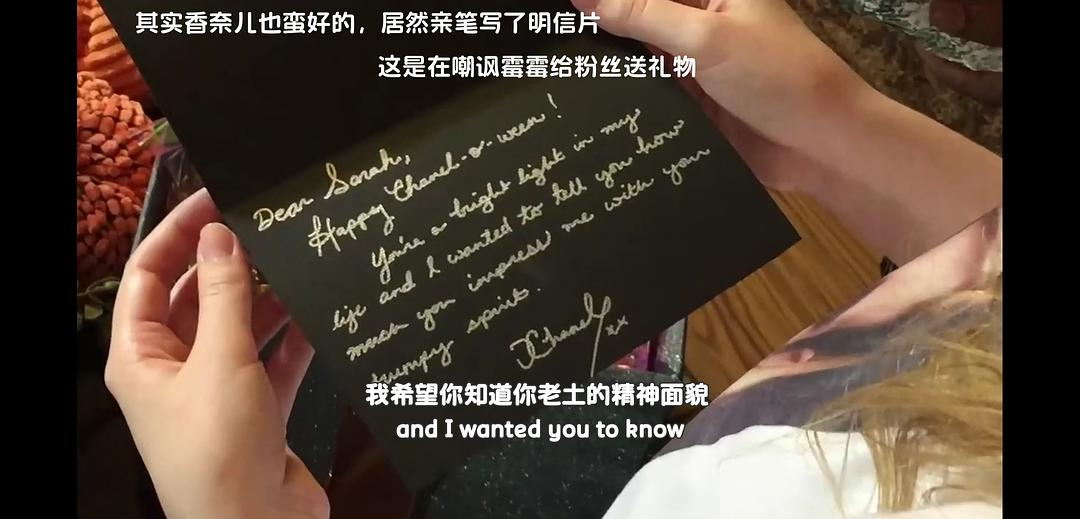 其实香奈儿也蛮好的，居然亲笔写了明信片
这是在嘲讽霉霉给粉丝送礼物
Dear Sarah,
Happy Chanel-o-ween!
You're a bright light in my
life and I wanted to tell you how
much you impress me with your
spirit.
Chanel xx
我希望你知道你老土的精神面貌
and I wanted you to know